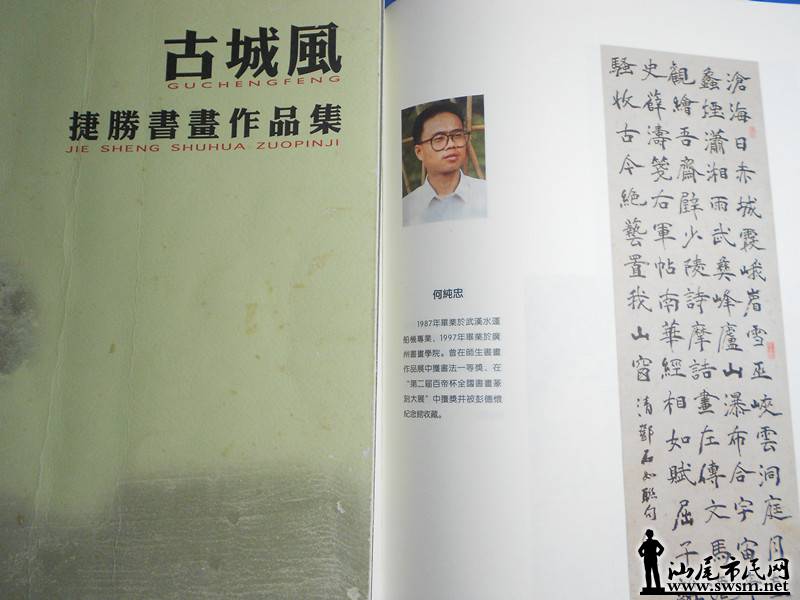 古城風
GUCHENGFENG
捷勝書畫作品集
JIE SHENG SHUHUA ZUOPINJI
何純忠
1987年畢業於武漢水運
船機專業、1997年畢業於廣
州書畫學院。曾在師生書畫
作品展中獲書法一等獎、在
“第二屆百帝杯全國書畫篆
刻大展”中獲獎并被彭德懷
紀念館收藏。
滄海日赤城霞峨眉雪巫峽雲洞庭月
蠡煙瀟湘雨武彝峰廬山瀑布合宇宙
觀繪吾齋壁少陵詩摩詰畫左傳文馬
史薛濤箋右軍帖南華經相如賦屈子
騷收古今絕藝置我山窗
清鄧石如聯句
汕尾市民网
www.swsm.com